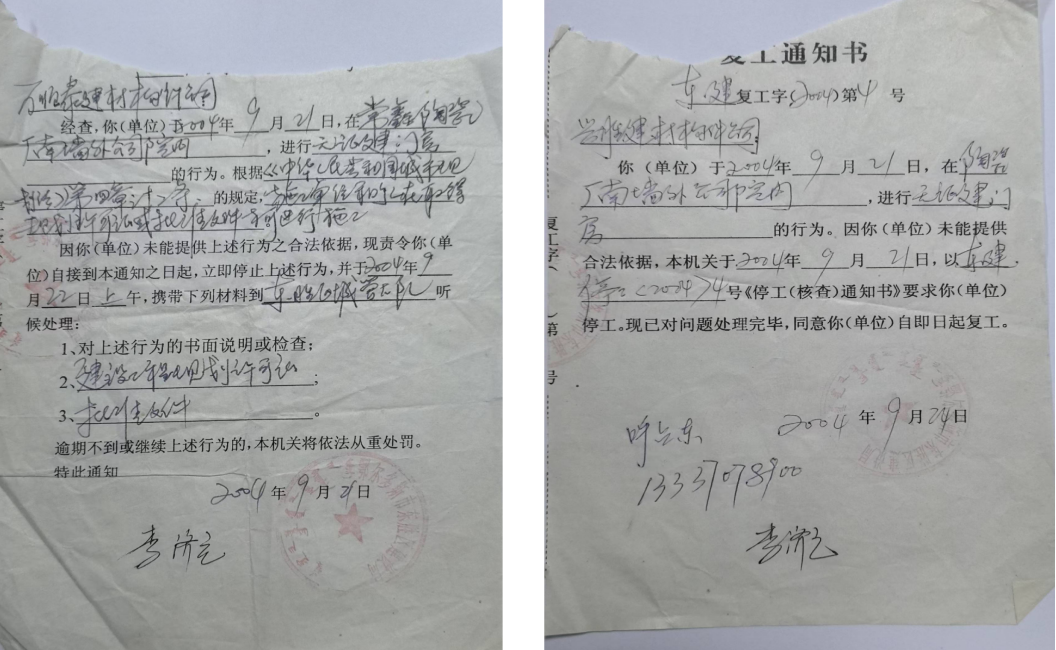 建材构件公司
经查，你(单位)于2004年9月21日，在常鑫陶瓷
厂南墙外公司院内，进行无证建门房
的行为。根据《中华人民共和国城市规
划法》第四章三十二条的规定，
划许可证或批准文件方可进行施工
因你(单位)未能提供上述行为之合法依据，现责令你(单
位)自接到本通知之日起，立即停止上述行为，并于2004年9
月22日上午，携带下列材料到东胜区城管大队听
候处理：
1、对上述行为的书面说明或检查；
2、建设工程规划许可证；
3、批准文件。
逾期不到或继续上述行为的，本机关将依法从重处罚。
特此通知
2004年9月21日
李济元
复工通知书
东建复工字(2004)第4号
建材构件公司：
你(单位)于2004年9月21日，在陶瓷
厂南墙外公司院内，进行无证建门
房的行为。因你(单位)未能提供
合法依据，本机关于2004年9月21日，以东建
停工(2004)4号《停工(核查)通知书》要求你(单位)
停工。现已对问题处理完毕，同意你(单位)自即日起复工。
2004年9月24日
13337078900
李济元
复工字(
)第
号